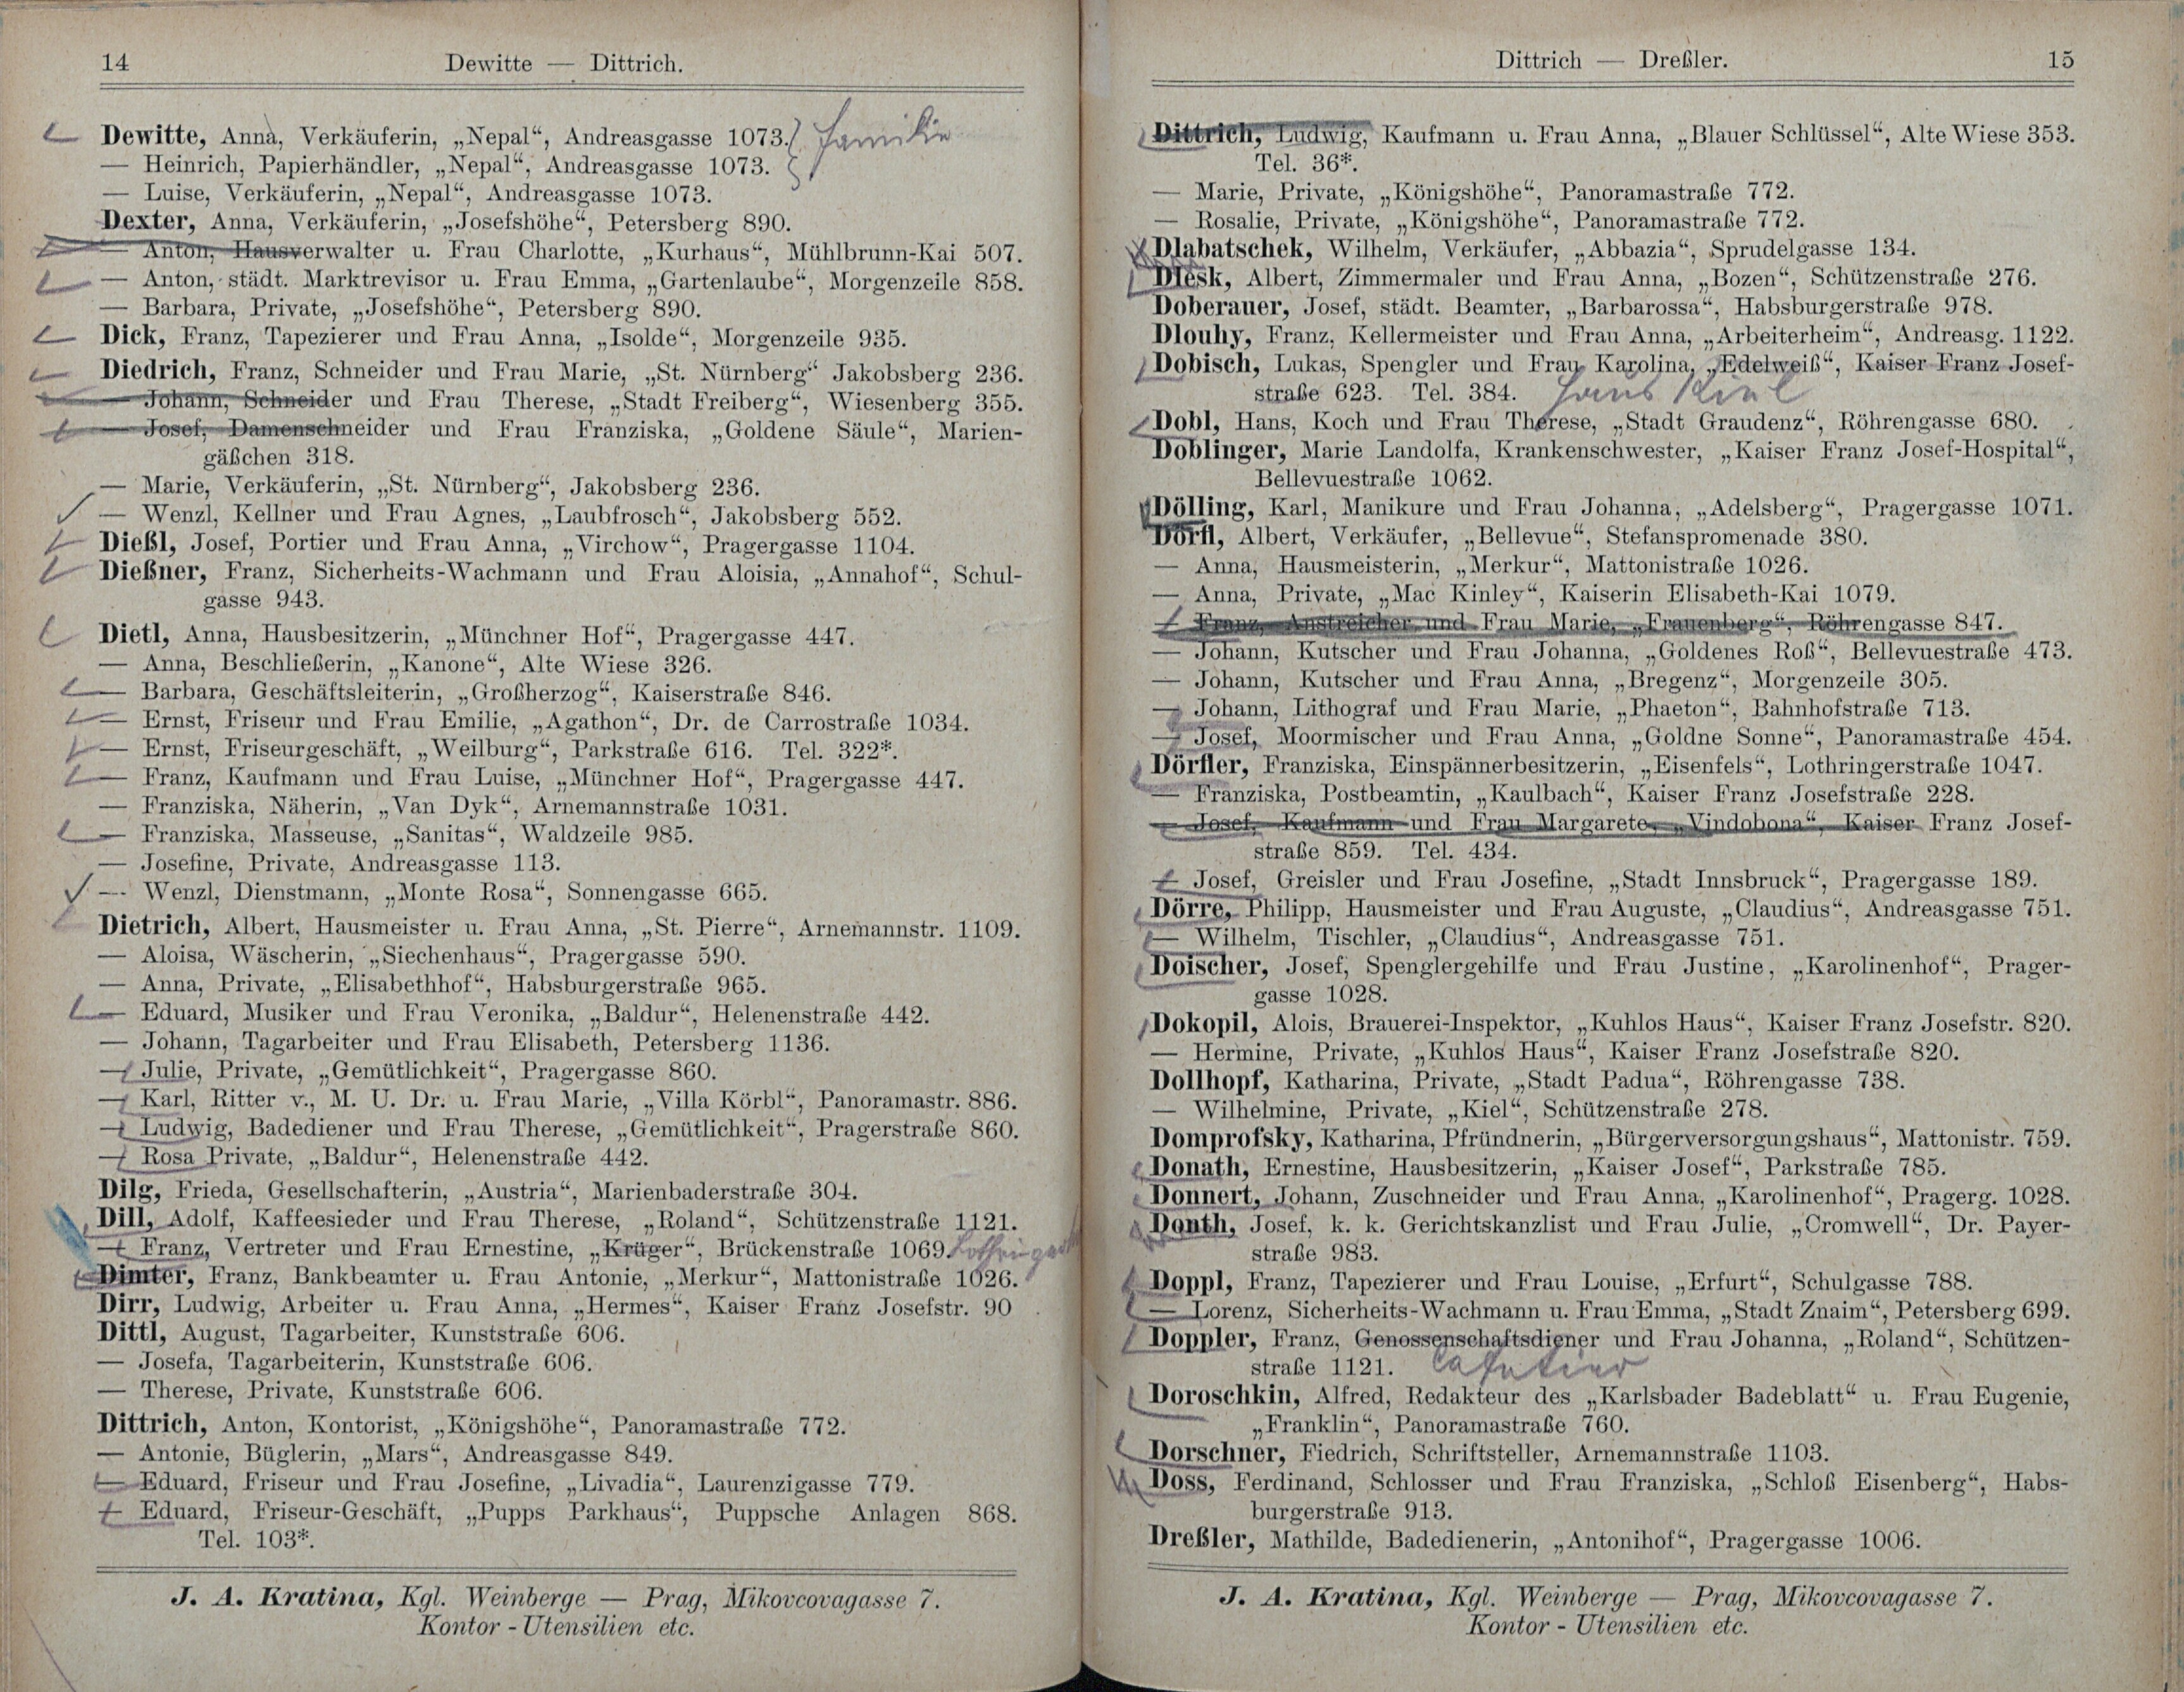 14 Dewitte — Dittrich.
Dewitte, Anna, Verkäuferin, „Nepal“, Andreasgasse 1073. Familie
— Heinrich, Papierhändler, „Nepal“, Andreasgasse 1073.
— Luise, Verkäuferin, „Nepal“, Andreasgasse 1073.
Dexter, Anna, Verkäuferin, „Josefshöhe“, Petersberg 890.
— Anton, Hausverwalter u. Frau Charlotte, „Kurhaus“, Mühlbrunn-Kai 507.
— Anton, städt. Marktrevisor u. Frau Emma, „Gartenlaube“, Morgenzeile 858.
— Barbara, Private, „Josefshöhe“, Petersberg 890.
Dick, Franz, Tapezierer und Frau Anna, „Isolde“, Morgenzeile 935.
Diedrich, Franz, Schneider und Frau Marie, „St. Nürnberg“ Jakobsberg 236.
— Johann, Schneider und Frau Therese, „Stadt Freiberg“, Wiesenberg 355.
— Josef, Damenschneider und Frau Franziska, „Goldene Säule“, Marien-
gäßchen 318.
— Marie, Verkäuferin, „St. Nürnberg“, Jakobsberg 236.
— Wenzl, Kellner und Frau Agnes, „Laubfrosch“, Jakobsberg 552.
Dießl, Josef, Portier und Frau Anna, „Virchow“, Pragergasse 1104.
Dießner, Franz, Sicherheits-Wachmann und Frau Aloisia, „Annahof“, Schul-
gasse 943.
Dietl, Anna, Hausbesitzerin, „Münchner Hof“, Pragergasse 447.
— Anna, Beschließerin, „Kanone“, Alte Wiese 326.
— Barbara, Geschäftsleiterin, „Großherzog“, Kaiserstraße 846.
— Ernst, Friseur und Frau Emilie, „Agathon“, Dr. de Carrostraße 1034.
— Ernst, Friseurgeschäft, „Weilburg“, Parkstraße 616. Tel. 322*.
— Franz, Kaufmann und Frau Luise, „Münchner Hof“, Pragergasse 447.
— Franziska, Näherin, „Van Dyk“, Arnemannstraße 1031.
— Franziska, Masseuse, „Sanitas“, Waldzeile 985.
— Josefine, Private, Andreasgasse 113.
— Wenzl, Dienstmann, „Monte Rosa“, Sonnengasse 665.
Dietrich, Albert, Hausmeister u. Frau Anna, „St. Pierre“, Arnemannstr. 1109.
— Aloisa, Wäscherin, „Siechenhaus“, Pragergasse 590.
— Anna, Private, „Elisabethhof“, Habsburgerstraße 965.
— Eduard, Musiker und Frau Veronika, „Baldur“, Helenenstraße 442.
— Johann, Tagarbeiter und Frau Elisabeth, Petersberg 1136.
— Julie, Private, „Gemütlichkeit“, Pragergasse 860.
— Karl, Ritter v., M. U. Dr. u. Frau Marie, „Villa Körbl“, Panoramastr. 886.
— Ludwig, Badediener und Frau Therese, „Gemütlichkeit“, Pragerstraße 860.
— Rosa Private, „Baldur“, Helenenstraße 442.
Dilg, Frieda, Gesellschafterin, „Austria“, Marienbaderstraße 304.
Dill, Adolf, Kaffeesieder und Frau Therese, „Roland“, Schützenstraße 1121.
— Franz, Vertreter und Frau Ernestine, „Krüger“, Brückenstraße 1069.
Dimter, Franz, Bankbeamter u. Frau Antonie, „Merkur“, Mattonistraße 1026.
Dirr, Ludwig, Arbeiter u. Frau Anna, „Hermes“, Kaiser Franz Josefstr. 90
Dittl, August, Tagarbeiter, Kunststraße 606.
— Josefa, Tagarbeiterin, Kunststraße 606.
— Therese, Private, Kunststraße 606.
Dittrich, Anton, Kontorist, „Königshöhe“, Panoramastraße 772.
— Antonie, Büglerin, „Mars“, Andreasgasse 849.
— Eduard, Friseur und Frau Josefine, „Livadia“, Laurenzigasse 779.
— Eduard, Friseur-Geschäft, „Pupps Parkhaus“, Puppsche Anlagen 868.
Tel. 103*.
J. A. Kratina, Kgl. Weinberge — Prag, Mikovcovagasse 7.
Kontor - Utensilien etc.
Dittrich — Dreßler. 15
Dittrich, Ludwig, Kaufmann u. Frau Anna, „Blauer Schlüssel“, Alte Wiese 353.
Tel. 36*.
— Marie, Private, „Königshöhe“, Panoramastraße 772.
— Rosalie, Private, „Königshöhe“, Panoramastraße 772.
Dlabatschek, Wilhelm, Verkäufer, „Abbazia“, Sprudelgasse 134.
Dlesk, Albert, Zimmermaler und Frau Anna, „Bozen“, Schützenstraße 276.
Doberauer, Josef, städt. Beamter, „Barbarossa“, Habsburgerstraße 978.
Dlouhy, Franz, Kellermeister und Frau Anna, „Arbeiterheim“, Andreasg. 1122.
Dobisch, Lukas, Spengler und Frau Karolina, „Edelweiß“, Kaiser Franz Josef-
straße 623. Tel. 384. Haus Kiel
Dobl, Hans, Koch und Frau Therese, „Stadt Graudenz“, Röhrengasse 680.
Doblinger, Marie Landolfa, Krankenschwester, „Kaiser Franz Josef-Hospital“,
Bellevuestraße 1062.
Dölling, Karl, Manikure und Frau Johanna, „Adelsberg“, Pragergasse 1071.
Dörfl, Albert, Verkäufer, „Bellevue“, Stefanspromenade 380.
— Anna, Hausmeisterin, „Merkur“, Mattonistraße 1026.
— Anna, Private, „Mac Kinley“, Kaiserin Elisabeth-Kai 1079.
— Franz, Anstreicher und Frau Marie, „Frauenberg“, Röhrengasse 847.
— Johann, Kutscher und Frau Johanna, „Goldenes Roß“, Bellevuestraße 473.
— Johann, Kutscher und Frau Anna, „Bregenz“, Morgenzeile 305.
— Johann, Lithograf und Frau Marie, „Phaeton“, Bahnhofstraße 713.
— Josef, Moormischer und Frau Anna, „Goldne Sonne“, Panoramastraße 454.
Dörfler, Franziska, Einspännerbesitzerin, „Eisenfels“, Lothringerstraße 1047.
— Franziska, Postbeamtin, „Kaulbach“, Kaiser Franz Josefstraße 228.
— Josef, Kaufmann und Frau Margarete, „Vindobona“, Kaiser Franz Josef-
straße 859. Tel. 434.
— Josef, Greisler und Frau Josefine, „Stadt Innsbruck“, Pragergasse 189.
Dörre, Philipp, Hausmeister und Frau Auguste, „Claudius“, Andreasgasse 751.
— Wilhelm, Tischler, „Claudius“, Andreasgasse 751.
Doischer, Josef, Spenglergehilfe und Frau Justine, „Karolinenhof“, Prager-
gasse 1028.
Dokopil, Alois, Brauerei-Inspektor, „Kuhlos Haus“, Kaiser Franz Josefstr. 820.
— Hermine, Private, „Kuhlos Haus“, Kaiser Franz Josefstraße 820.
Dollhopf, Katharina, Private, „Stadt Padua“, Röhrengasse 738.
— Wilhelmine, Private, „Kiel“, Schützenstraße 278.
Domprofsky, Katharina, Pfründnerin, „Bürgerversorgungshaus“, Mattonistr. 759.
Donath, Ernestine, Hausbesitzerin, „Kaiser Josef“, Parkstraße 785.
Donnert, Johann, Zuschneider und Frau Anna, „Karolinenhof“, Pragerg. 1028.
Donth, Josef, k. k. Gerichtskanzlist und Frau Julie, „Cromwell“, Dr. Payer-
straße 983.
Doppl, Franz, Tapezierer und Frau Louise, „Erfurt“, Schulgasse 788.
— Lorenz, Sicherheits-Wachmann u. Frau Emma, „Stadt Znaim“, Petersberg 699.
Doppler, Franz, Genossenschaftsdiener und Frau Johanna, „Roland“, Schützen-
straße 1121. Cafetier
Doroschkin, Alfred, Redakteur des „Karlsbader Badeblatt“ u. Frau Eugenie,
„Franklin“, Panoramastraße 760.
Dorschner, Fiedrich, Schriftsteller, Arnemannstraße 1103.
Doss, Ferdinand, Schlosser und Frau Franziska, „Schloß Eisenberg“, Habs-
burgerstraße 913.
Dreßler, Mathilde, Badedienerin, „Antonihof“, Pragergasse 1006.
J. A. Kratina, Kgl. Weinberge — Prag, Mikovcovagasse 7.
Kontor - Utensilien etc.